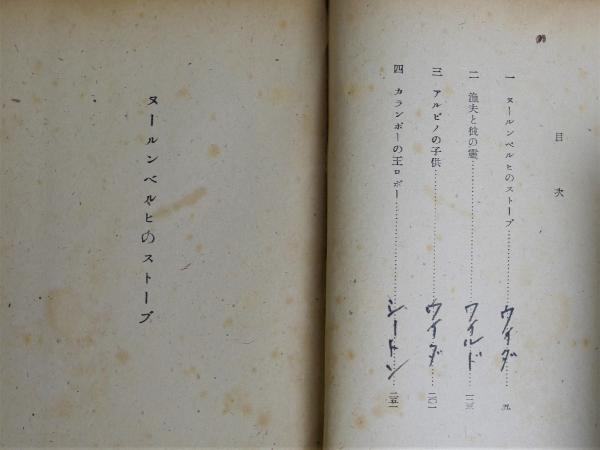 目次
一 ヌールンベルヒのストーブ……ウイダ……九
二 漁夫と彼の霊……ワイルド……一二三
三 アルピノの子供……ウイダ……二〇一
四 カランポーの王ロボー……シートン……二五一
ヌールンベルヒのストーブ